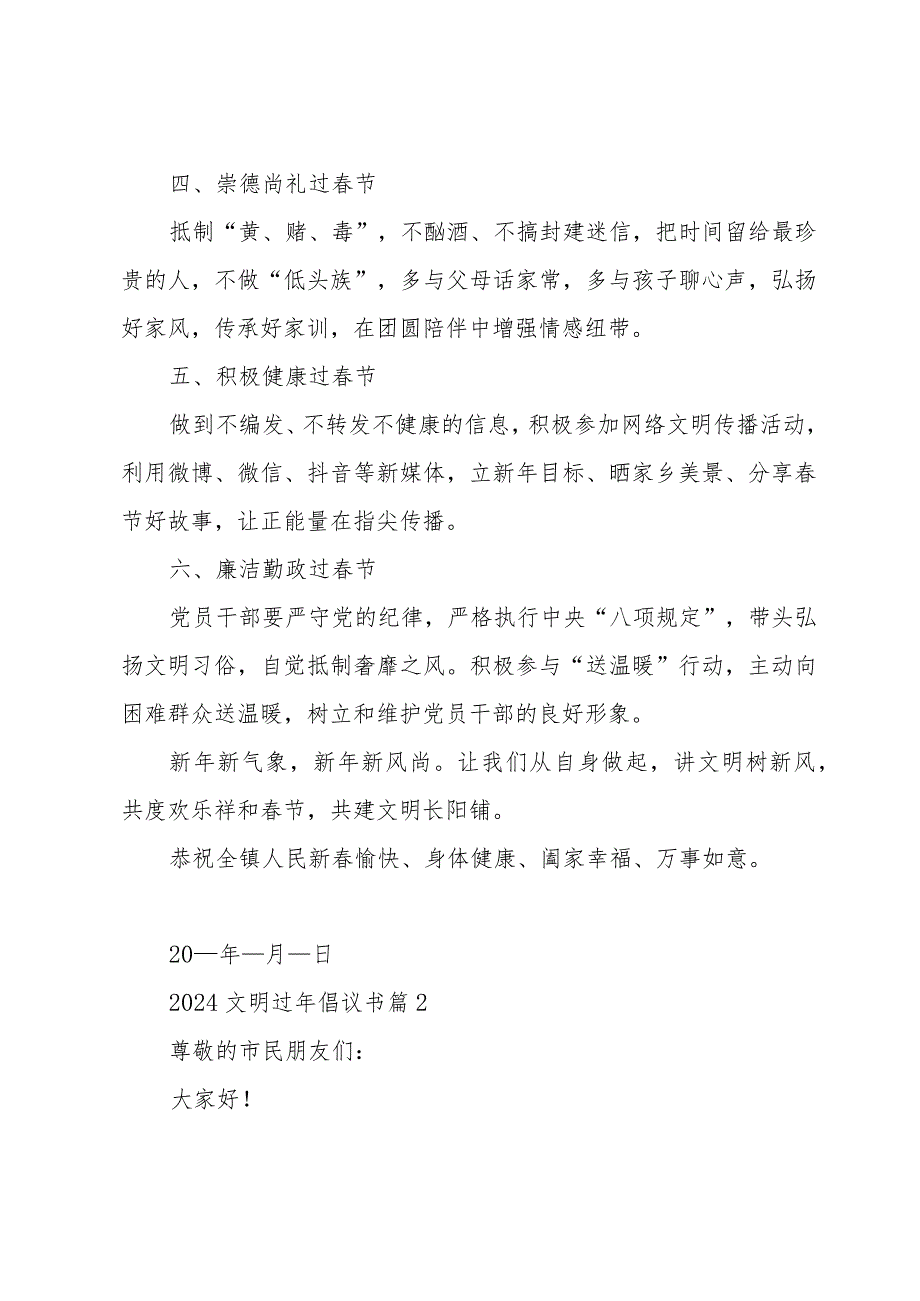 四、崇德尚礼过春节
抵制“黄、赌、毒”，不酗酒、不搞封建迷信，把时间留给最珍
贵的人，不做“低头族”，多与父母话家常，多与孩子聊心声，弘扬
好家风，传承好家训，在团圆陪伴中增强情感纽带。
五、积极健康过春节
做到不编发、不转发不健康的信息，积极参加网络文明传播活动，
利用微博、微信、抖音等新媒体，立新年目标、晒家乡美景、分享春
节好故事，让正能量在指尖传播。
六、廉洁勤政过春节
党员干部要严守党的纪律，严格执行中央“八项规定”，带头弘
扬文明习俗，自觉抵制奢靡之风。积极参与“送温暖”行动，主动向
困难群众送温暖，树立和维护党员干部的良好形象。
新年新气象，新年新风尚。让我们从自身做起，讲文明树新风，
共度欢乐祥和春节，共建文明长阳铺。
恭祝全镇人民新春愉快、身体健康、阖家幸福、万事如意。
20—年—月—日
2024 文明过年倡议书篇 2
尊敬的市民朋友们：
大家好！